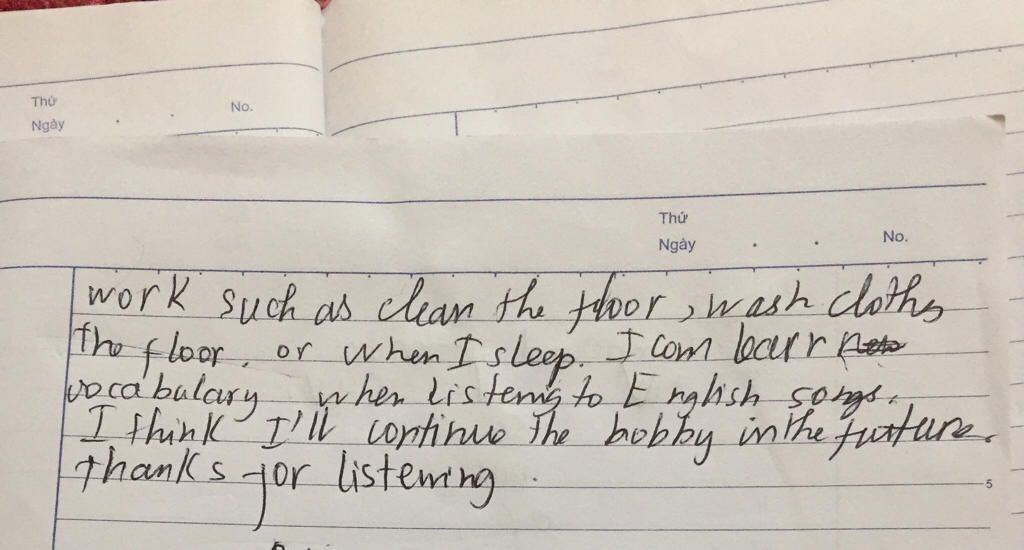 Thứ
Ngày . . No.
Thứ
Ngày . . No.
work such as clean the floor, wash cloths
the floor. or when I sleep. I can learn
vocabulary when listening to English songs.
I think I'll continue the hobby in the future.
thanks for listening.
5